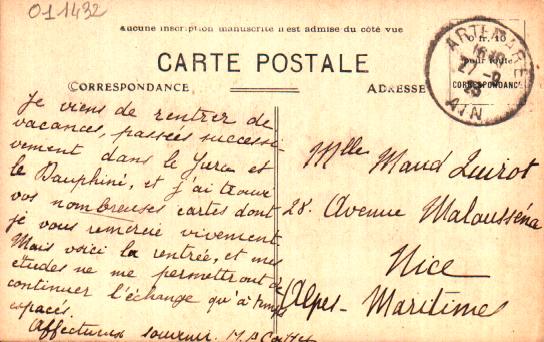 011432
Aucune inscription manuscrite n'est admise du côté vue
CARTE POSTALE
CORRESPONDANCE
ADRESSE
0 fr. 10
pour toute
CORRESPONDANCE
ARTEMARE
16
27 -9
25
AIN
Je viens de rentrer de
vacances, passées successi-
vement dans le Jura et
le Dauphiné, et j'ai trouvé
vos nombreuses cartes dont
je vous remercie vivement.
Mais voici la rentrée, et mes
études ne me permettront de
continuer l'échange qu'à temps
espacés.
Affectueux souvenir.
Mlle Maud Quirot
28. Avenue Malausséna
Nice
Alpes-Maritimes